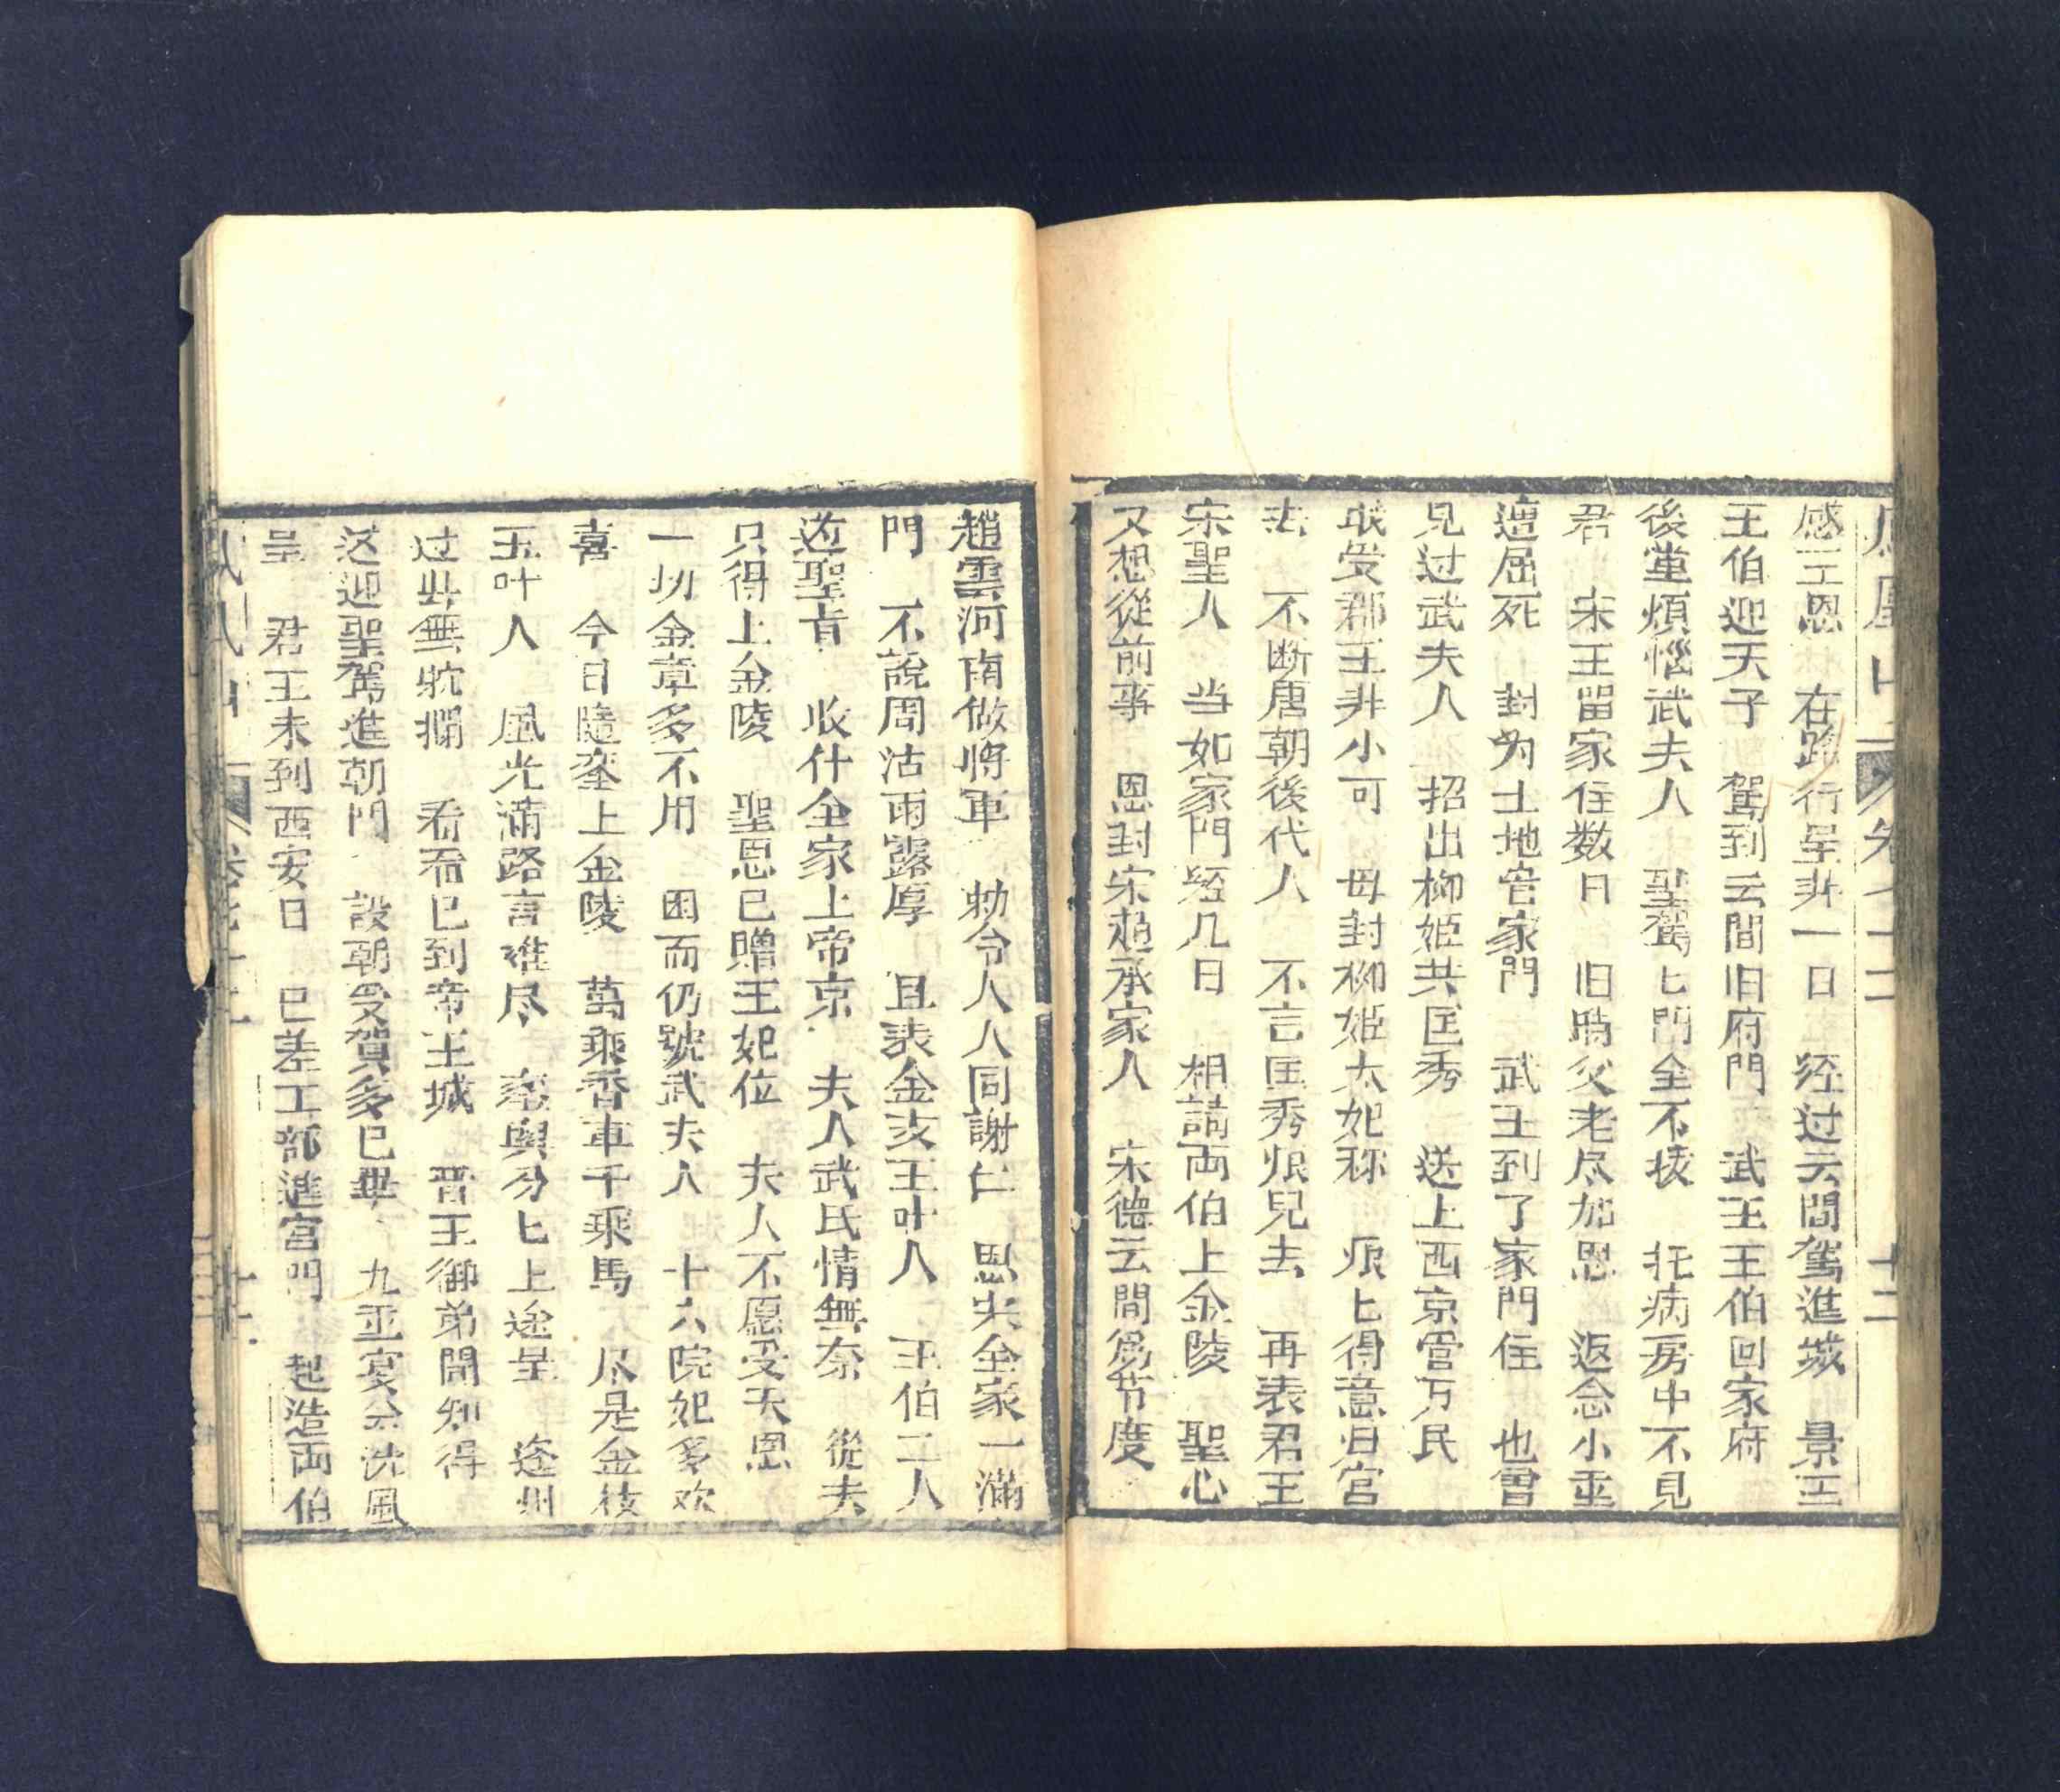 感王恩　在路行呈非一日　经过云間駕進城　景王
王伯迎天子　駕到云間旧府門　武王王伯回家府
後堂煩惱武夫人　聖駕匕門全不接　托病房中不見
君　宋王留家住数日　旧時父老尽加恩　返念小垂
遭屈死　封为土地官家門　武王到了家門住　也曾
見过武夫人　招出柳姬共匡秀　送上西京管万民
珉受郡王非小可　母封柳姬太妃称　　匕得意归宫
去　不断唐朝後代人　不言匡秀娘兒去　再表君王
宋聖人　当如家門经几日　相請両伯上金陵　聖心
又想從前事　恩封宋趙承家人　宋德云間為节度
趙雲河南做將軍　勅令人人同謝仁　恩出全家一滿
門　不說周沽雨露厚　且表金支王叶人　王伯二人
遵聖旨　收什全家上帝京　夫人武氏情無奈　從夫
只得上金陵　聖恩已贈王妃位　夫人不愿受天恩
一切金章多不用　因而仍號武夫人　十六院妃多欢
喜　今日隨銮上金陵　萬乘香車千乘馬　尽是金枝
玉叶人　風光滿路言难尽　銮輿分匕上途呈　逢州
过县無耽擱　看看已到帝王城　晋王御弟聞知得
迎聖駕進朝門　設朝受賀多已畢　九重宴会洗風
呈　君王未到西安日　已差工部進宮門　起造両伯
卷七十二